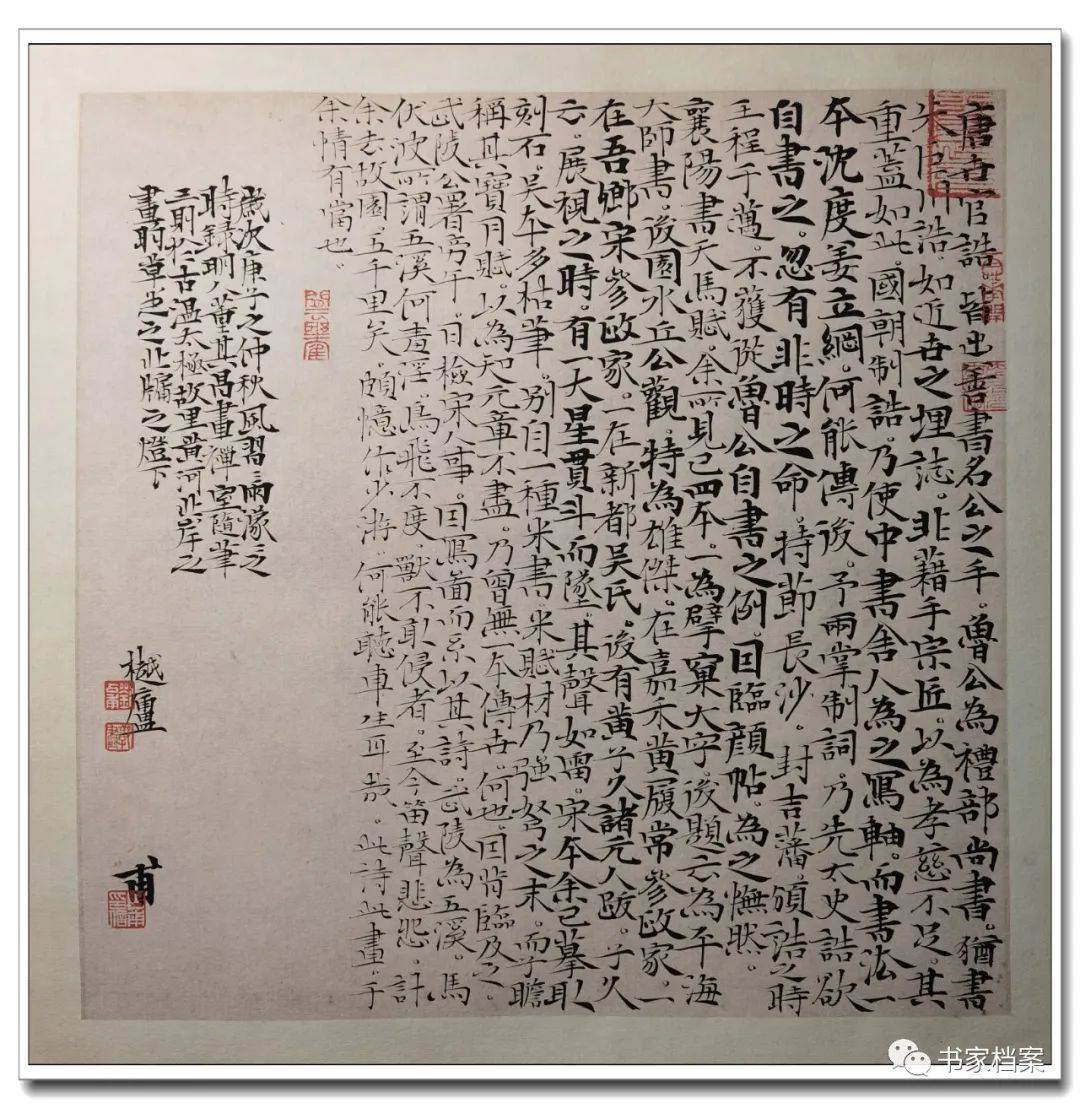 唐世官誥。皆出善書名公之手。魯公為禮部尚書。猶書
朱巨川誥。如近世之埋誌。非藉手宗匠。以為孝慈不足。其
重蓋如此。國朝制誥。乃使中書舍人為之寫軸。而書法一
本沈度姜立綱。何能傳後。予兩掌制詞。乃先太史誥欲
自書之。忽有非時之命。持節長沙。封吉藩。頒誥之時
王程于萬。不獲從魯公自書之例。因臨顏帖。為之憮然。
襄陽書天馬賦。余所見已四本。一為擘窠大字。後題云為平海
大師書。後園水丘公觀。特為雄傑。在嘉禾黃履常參政家。一
在吾鄉宋參政家。一在新都吳氏。後有黃子久諸元人跋。子久
云。展視之時。有一大星貫斗而墜。其聲如雷。宋本余已摹取
刻石。吳本多枯筆。別自一種米書。米賦材乃強弩之末。而子瞻
稱其寶月賦。以為知元章不盡。乃曾無一本傳世。何也。因背臨及之。
武陵公署旁午。日檢宋人事。因寫畫而系以其詩。武陵為五溪。馬
伏波所謂五溪何毒淫。鳥飛不度。獸不敢侵者。至今笛聲悲怨。計
余去故園。五千里矣。頗憶作少游。何能聽車生耳哉。此詩此畫。于
余情有當也。
歲次庚子之仲秋風習習雨濛濛之
時錄明人董其昌畫禪室隨筆
三則於古溫太極故里黃河北岸之
畫耕草堂之北牖之燈下
樾廬
甫
书家档案